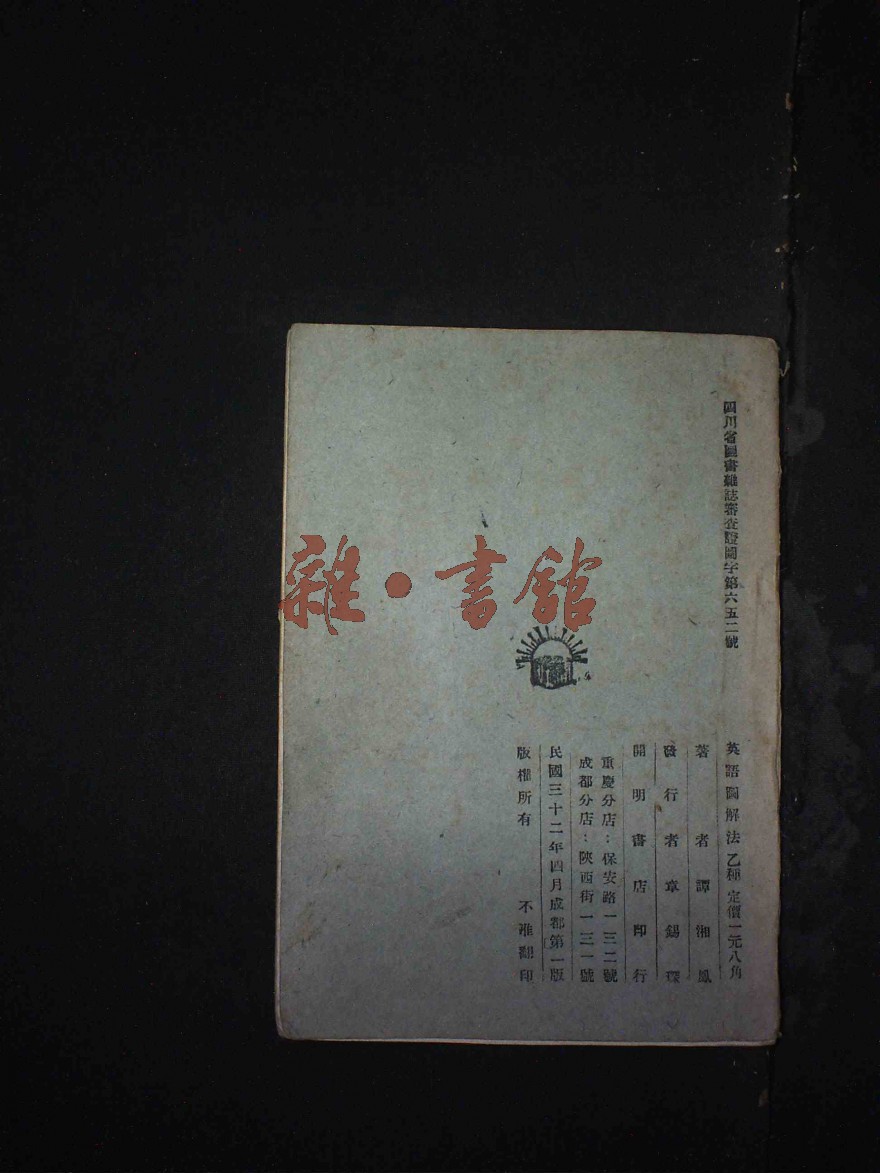 四川省圖書雜誌審査證圖字第六五二號
英語圖解法乙種定價一元八角
著者譚湘鳳
發行者章錫琛
開明書店印行
重慶分店：保安路一三二號
成都分店：陝西街一三一號
民國三十二年四月成都第一版
版權所有 不准翻印
雜·書館